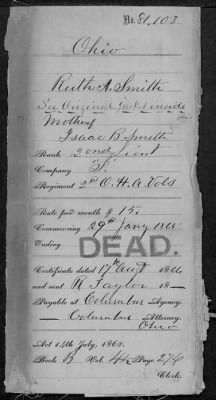 No. 81,103
Ohio
Ruth A. Smith
See Original
Mother of
Isaac B Smith
Rank 2ond Lieut
Company "F"
Regiment 2nd O. H. A. Vols
Rate per month $ 15.
Commencing 29th Jany 1865
Ending
DEAD.
Certificate dated 17th Augt 1866
and sent R Taylor 18—
Payable at Columbus Agency.
Columbus Attorney.
Ohio
Act 14th July, 1862.
Book B Vol. 4 Page 274
Clerk.